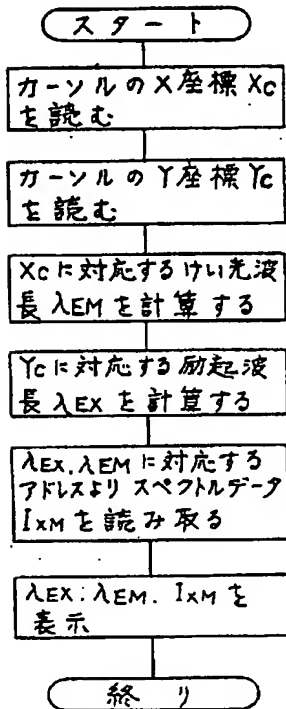 スタート
カーソルのX座標Xc
を読む
カーソルのY座標Yc
を読む
Xcに対応するけい光波
長λEMを計算する
Ycに対応する励起波
長λEXを計算する
λEX.λEMに対応する
アドレスよりスペクトルデータ
IXMを読み取る
λEX:λEM.IXMを
表示
終り